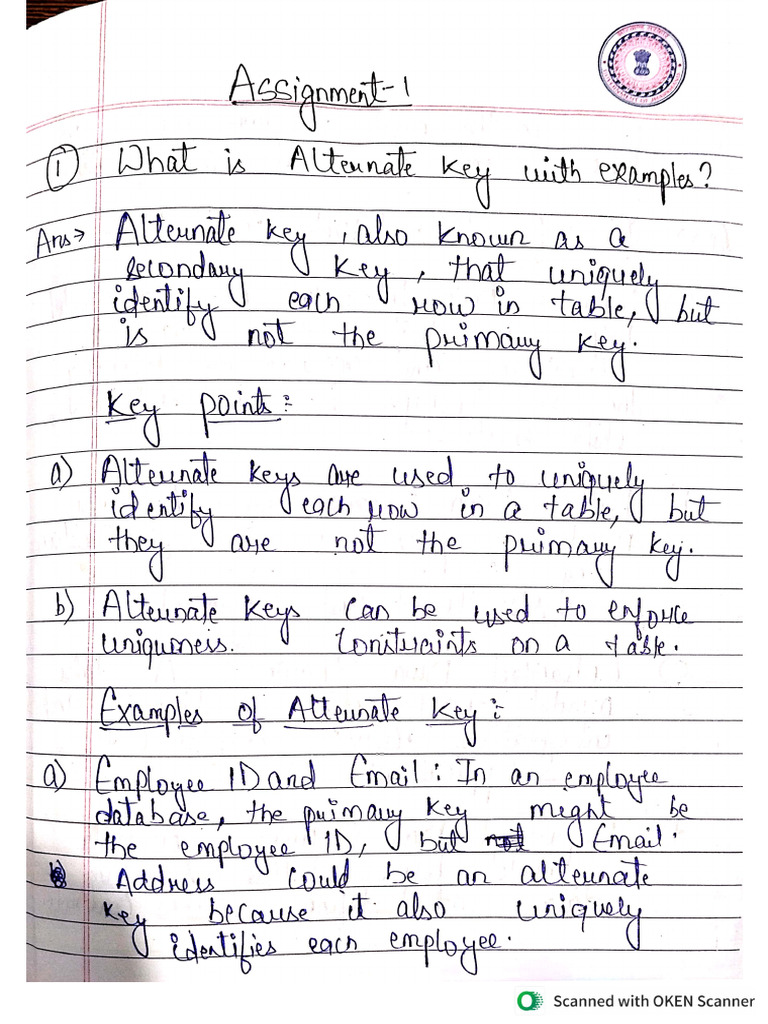 Assignment-1
① What is Alternate key with examples?
Ans→ Alternate key, also known as a
secondary key, that uniquely
identify each row in table, but
is not the primary key.
Key points:
a) Alternate keys are used to uniquely
identify each row in a table, but
they are not the primary key.
b) Alternate keys can be used to enforce
uniqueness. constraints on a table.
Examples of Alternate key:
a) Employee ID and Email: In an employee
database, the primary key might be
the employee ID, but Email.
Address could be an alternate
key because it also uniquely
identifies each employee.
Scanned with OKEN Scanner